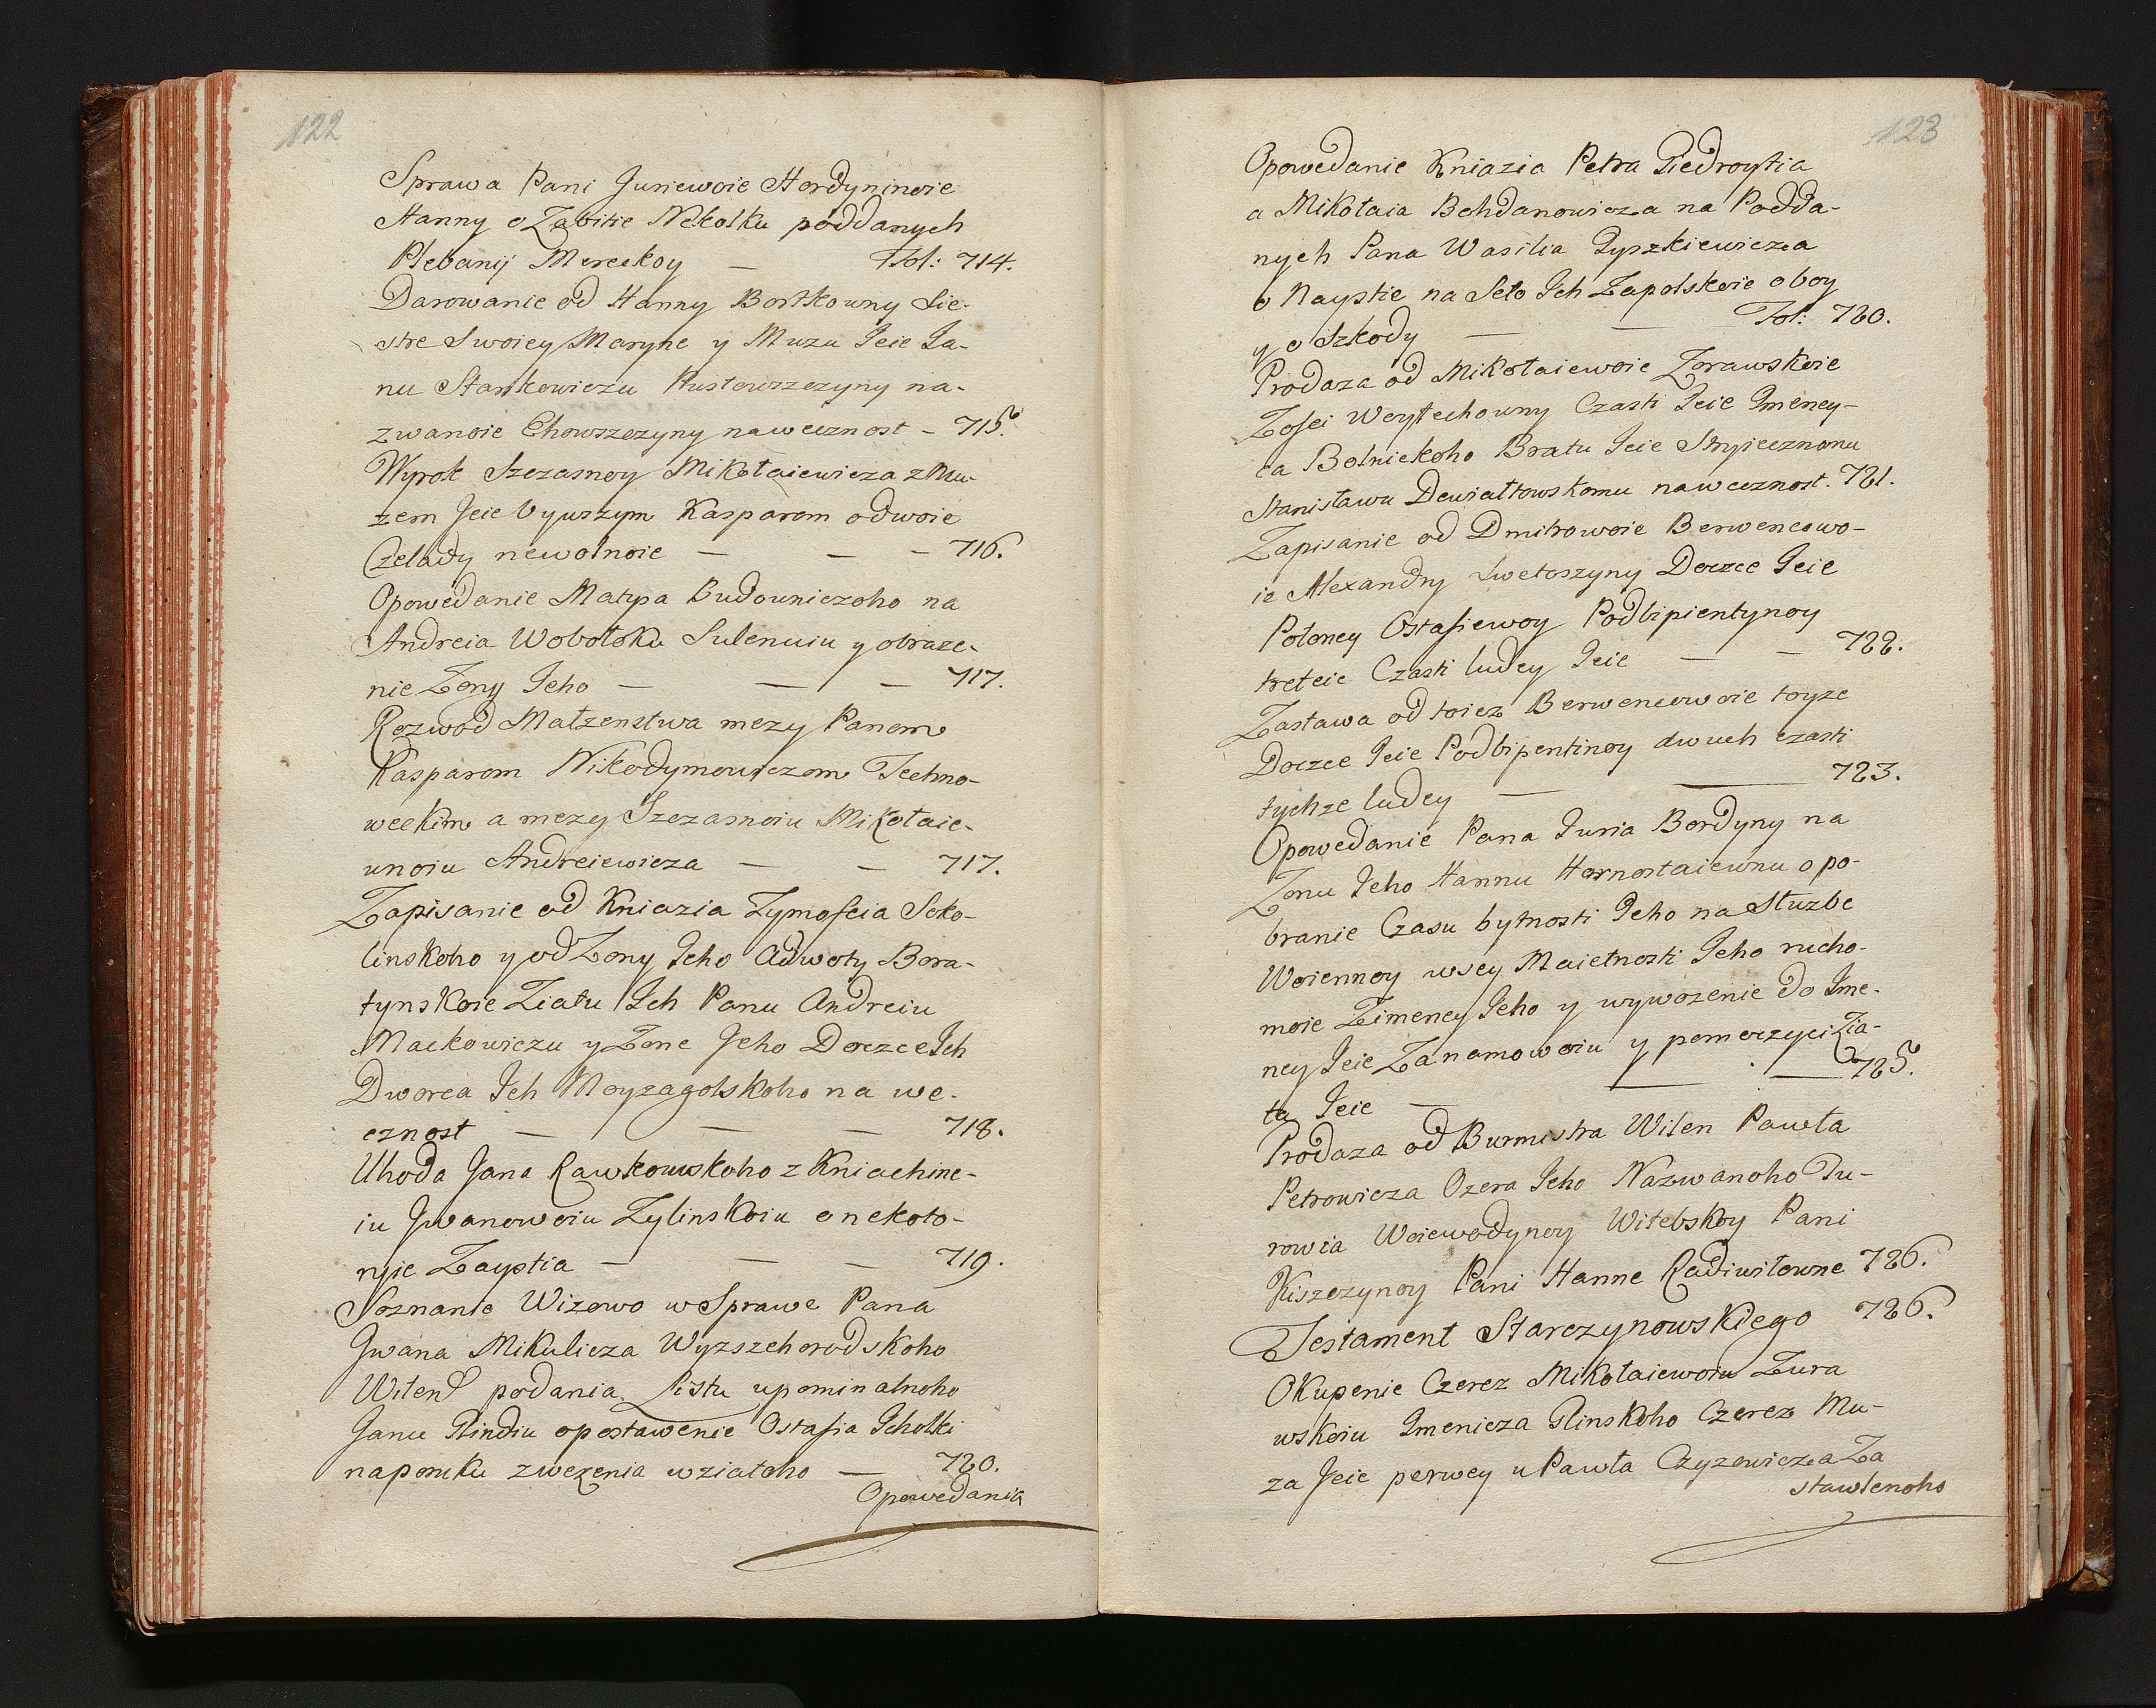 122
Sprawa Pani Juriewoie Hordyninoie
Hanny o Zabitie Nekolku poddanych
Plebanij Mereckoy — Fol: 714.
Darowanie od Hanny Bortkowny Sie-
stre Swoiey Maryne y Muzu Jeie Ja-
nu Stankewiczu Pustowszczyny na-
zwanoie Chowszczyny nawecznost – 715.
Wyrok Szczasnoy Mikołaiewicza z Mu-
zem Jeie Vyuszym Kasparom odwoie
Czelady newolnoie — — – 716.
Opowedanie Matysa Budowniczoho na
Andreia Wobołoku Sulenuiu y obraze-
nie Zony Jeho — — – 717.
Rozwod Małzenstwa mezy Panom
Kasparom Nikodymowiczom Techno-
weckim a mezy Szczasnoiu Mikołaie-
wnoiu Andreiewicza — – 717.
Zapisanie od Kniazia Tymofeia Soko-
linskoho y od Zony Jeho Adwoty Bora-
tynskoie Ziatu Ich Panu Andreiu
Mackowiczu y Zone Jeho Doczce Ich
Dworca Ich Moyzagolskoho na we-
cznost — — — 718.
Uhoda Jana Rawkowskoho z Kniachine-
iu Iwanowoiu Zylinskoiu o nekoto-
ryie Zaystia — — — 719.
Soznanie Wizowo w Sprawe Pana
Iwana Mikulicza Wyzszehorodskoho
Wilen podania Listu upominalnoho
Janu Rindiu opostawenie Ostafia Scholki
naporuku zwezenia wziatoho — 720.
Opowedania
123
Opowedanie Kniazia Petra Giedroytia
a Mikołaia Bohdanowicza na Podda-
nych Pana Wasilia Tyszkiewicza
o Naystie na Seło Ich Zapolskoie o boy
y o Szkody — — Fol: 720.
Prodaza od Mikołaiewoie Zorawskoie
Zofei Woytechowny Czasti Jeie Imeney-
ca Bolnickoho Bratu Jeie Stryiecznomu
Stanisławu Dewiałtowskomu nawecznost. 721.
Zapisanie od Dmitrowoie Berwencowo-
ie Alexandry Swetoszyny Doczce Jeie
Poloney Ostafiewoy Podbipientynoy
treteie Czasti ludey Jeie — – 722.
Zastawa od toiez Berwencowoie toyze
Doczce Jeie Podbipentinoy dwuch czasti
tychze ludey — — 723.
Opowedanie Pana Juria Bordyny na
Zonu Jeho Hannu Hornostaiewnu o po-
branie Czasu bytnosti Jeho na Sluzbe
Woiennoy wsey Maietnosti Jeho rucho-
moie Z imeney Jeho y wywozenie do Ime-
ney Jeie Za namowoiu y pomoczyci Zia-
ta Jeie — — — 725.
Prodaza od Burmistra Wilen Pawła
Petrowicza Ozera Jeho Nazwanoho Tu-
rowia Woiewodynoy Witebskoy Pani
Kiszczynoy Pani Hanne Radiwiłowne 726.
Testament Starczynowskiego 726.
Okupenie Czerez Mikołaiewoiu Zura
wskoiu Imenicza Glinskoho Czerez Mu-
za Jeie perwey u Pawła Czyzewicza Za
stawlenoho